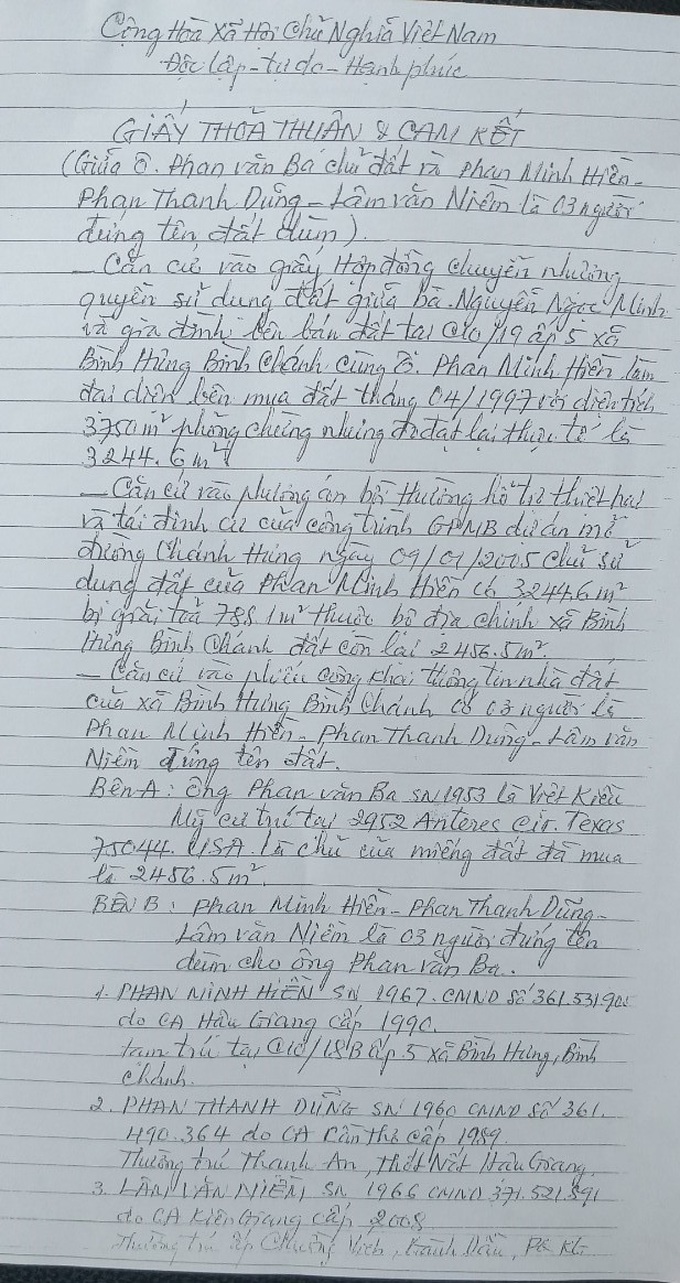 Cộng Hoà Xã Hội Chủ Nghĩa Việt Nam
Độc lập - tự do - Hạnh phúc
GIẤY THOẢ THUẬN & CAM KẾT
(Giữa Ô. Phan Văn Ba chủ đất và Phan Minh Hiền -
Phan Thanh Dũng - Lâm Văn Niềm là 03 người
đứng tên đất dùm).
- Căn cứ vào giấy Hợp đồng chuyển nhường
quyền sử dụng đất giữa bà. Nguyễn Ngọc Minh
và gia đình bên bán đất tại C10/19 ấp 5 xã
Bình Hưng Bình Chánh cùng Ô. Phan Minh Hiền làm
đại diện bên mua đất tháng 04/1997 với diện tích
3750m² phỏng chừng nhưng đo đạt lại thực tế là
3244.6m².
- Căn cứ vào phương án bồi thường hỗ trợ thiệt hại
và tái định cư của công trình GPMB dự án mở
đường Chánh Hưng ngày 09/01/2005 chủ sử
dụng đất của Phan Minh Hiền có 3244.6m²
bị giải toả 788.1m² thuộc bộ địa chính xã Bình
Hưng Bình Chánh đất còn lại 2456.5m².
- Căn cứ vào phiếu công khai thông tin nhà đất
của xã Bình Hưng Bình Chánh có 03 người là
Phan Minh Hiền - Phan Thanh Dũng - Lâm Văn
Niềm đứng tên đất.
Bên A: Ông Phan Văn Ba SN 1953 là Việt Kiều
Mỹ cư trú tại 2952 Anteres Cir. Texas
75044. USA. là chủ của miếng đất đã mua
là 2456.5m².
BÊN B: Phan Minh Hiền - Phan Thanh Dũng -
Lâm Văn Niềm là 03 người đứng tên
dùm cho ông Phan Văn Ba.
1. PHAN MINH HIỀN SN 1967. CMND Số 361.531.90
do CA Hậu Giang cấp 1990.
tạm trú tại C10/18B ấp 5 xã Bình Hưng, Bình
Chánh.
2. PHAN THANH DŨNG SN 1960 CMND Số 361.
490.364 do CA Cần Thơ cấp 1989.
Thường trú Thạnh An, Thốt Nốt Hậu Giang.
3. LÂM VĂN NIỀM SN 1966 CMND 371.521.891
do CA Kiên Giang cấp 2008
Thường trú ấp Chường Vich, Gành Dầu, PQ KG.